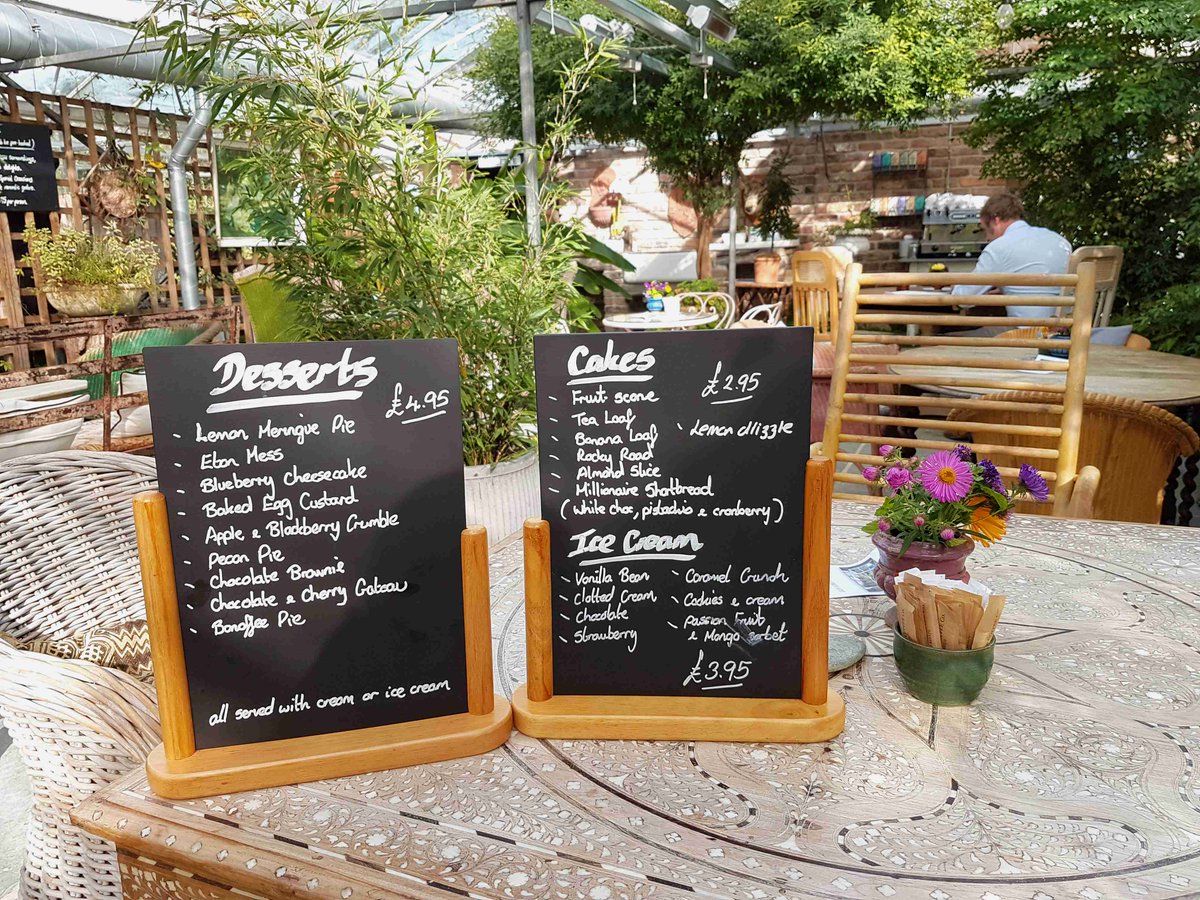 Desserts
£4.95
- Lemon Meringue Pie
- Eton Mess
- Blueberry Cheesecake
- Baked Egg Custard
- Apple & Blackberry Crumble
- Pecan Pie
- Chocolate Brownie
- Chocolate & Cherry Gateau
- Banoffee Pie
all served with cream or ice cream
Cakes
£2.95
- Fruit scone
- Tea Loaf
- Banana Loaf
- Rocky Road
- Almond Slice
- Millionaire Shortbread
(white choc, pistachio & cranberry)
- Lemon drizzle
Ice Cream
- Vanilla Bean
- Clotted Cream
- Chocolate
- Strawberry
- Caramel Crunch
- Cookies & cream
- Passion Fruit
& Mango Sorbet
£3.95